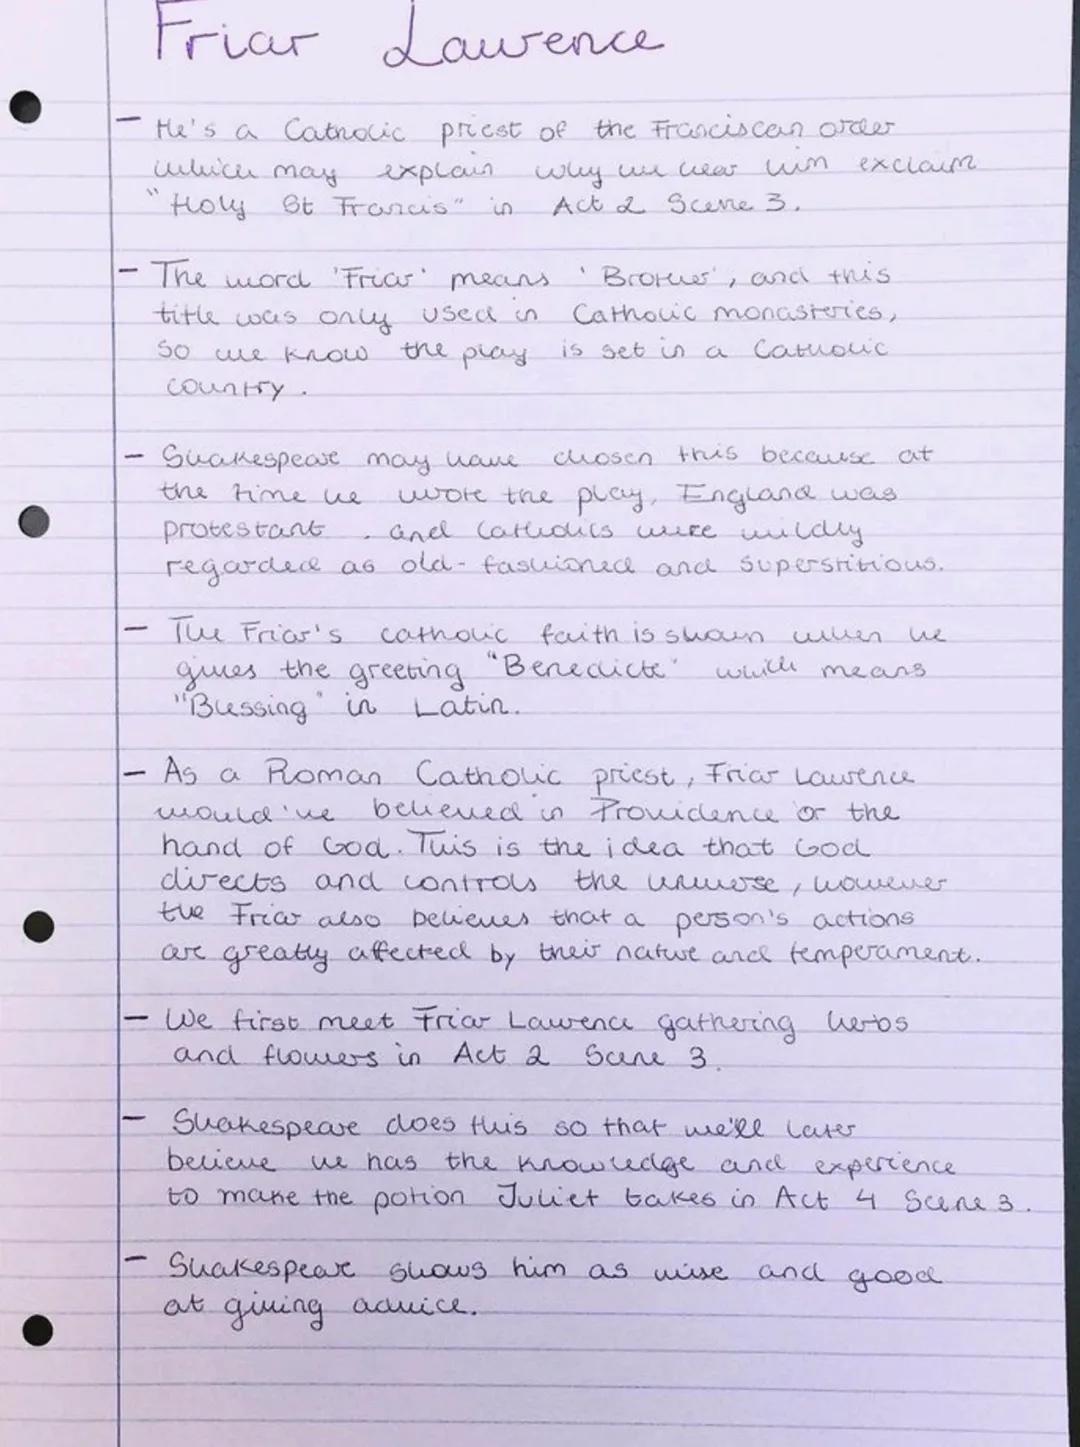 Friar Lawrence
- He's a Catholic priest of the Franciscan order
which may explain why we hear him exclaim
"Holy St Francis" in Act 2 Scene 3.
- The word 'Friar' means 'Brother', and this
title was only used in Catholic monasteries,
so we know the play is set in a Catholic
country.
- Shakespeare may have chosen this because at
the time he wrote the play, England was
protestant. and Catholics were
regarded as old-fashioned and superstitious.
- The Friar's catholic faith is shown when he
gives the greeting "Benedicte" which means
"Blessing" in Latin.
- As a Roman Catholic priest, Friar Lawrence
would've believed in Providence or the
hand of God. This is the idea that God
directs and controls the universe, however
the Friar also believes that a person's actions
are greatly affected by their nature and temperament.
- We first meet Friar Lawrence gathering herbs
and flowers in Act 2 Scene 3.
- Shakespeare does this so that we'll later
believe he has the knowledge and experience
to make the potion Juliet takes in Act 4 Scene 3.
- Shakespeare shows him as wise and good
at giving advice.